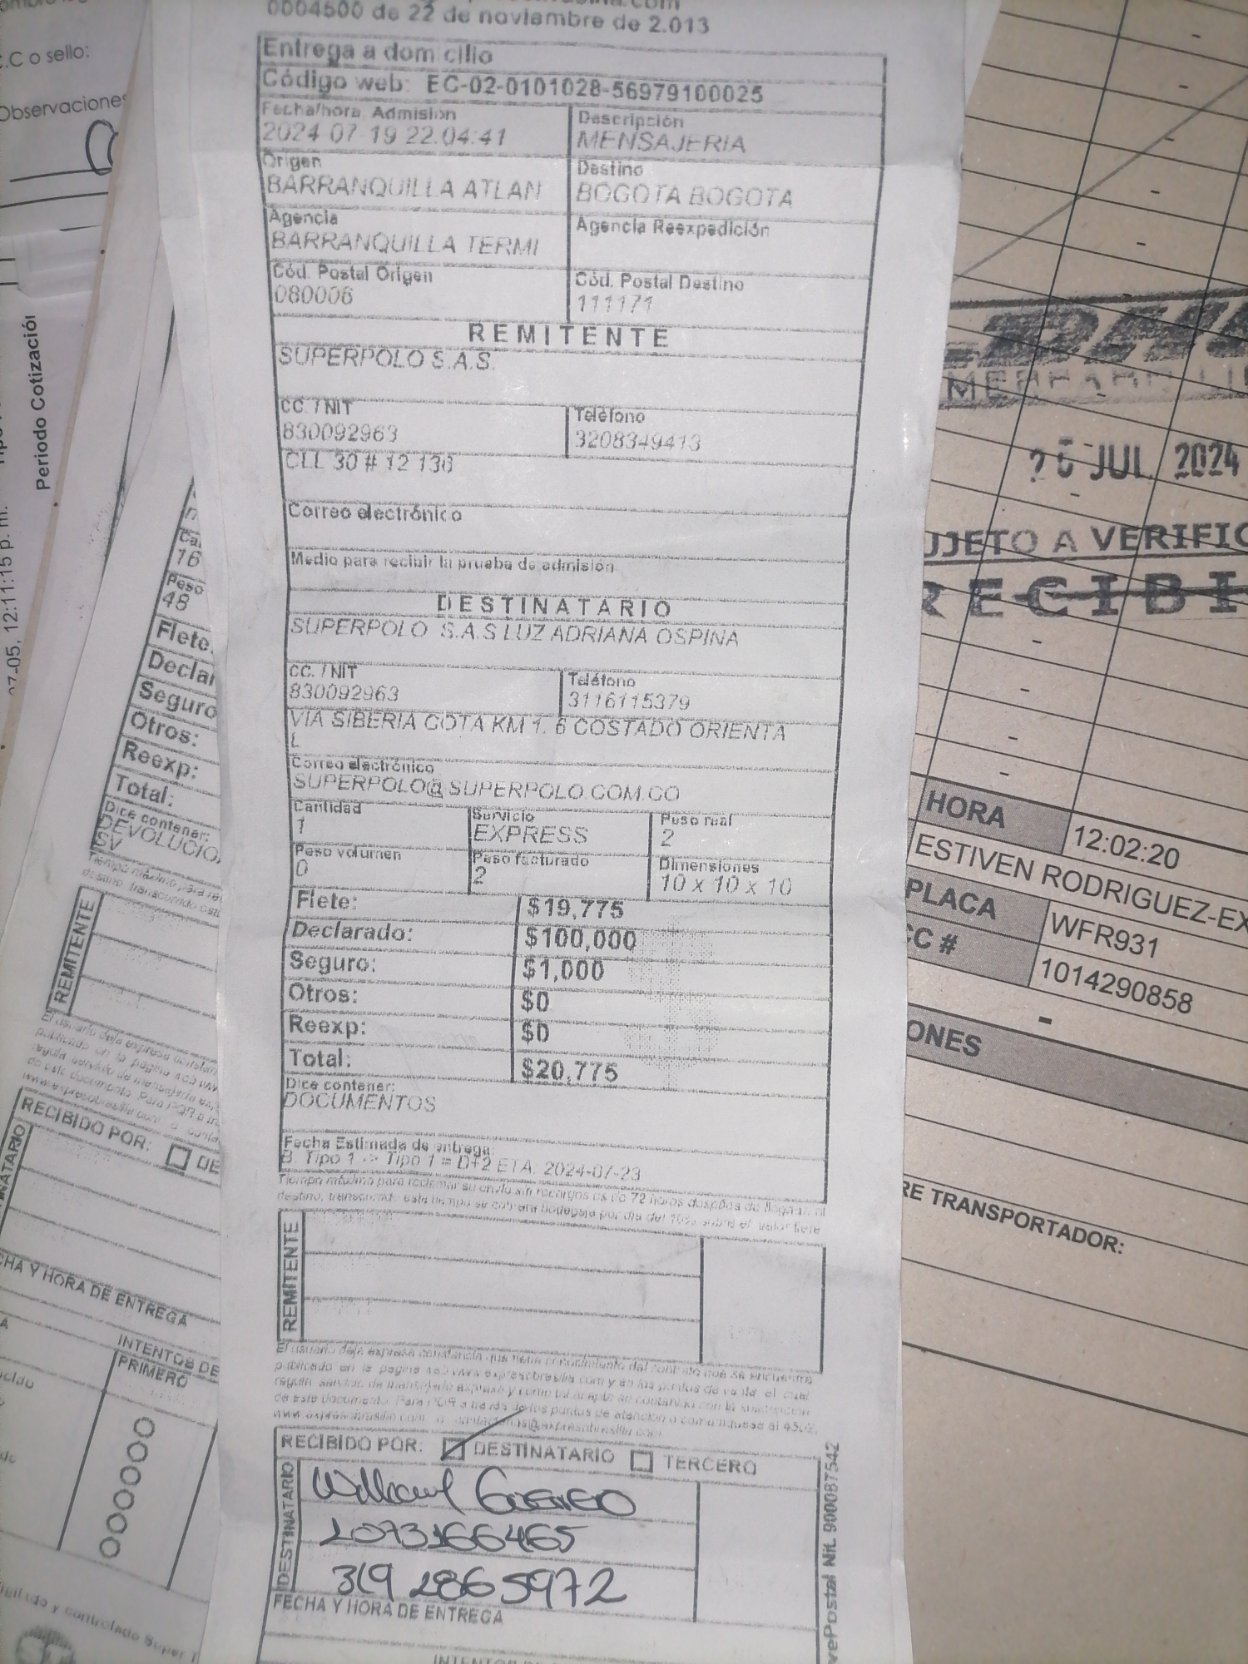 0004500 de 22 de noviembre de 2.013
Entrega a domicilio
Código web: EC-02-0101028-56979100025
Fecha/hora. Admisión
2024-07-19 22:04:41
Descripción
MENSAJERIA
Origen
BARRANQUILLA ATLAN
Destino
BOGOTA BOGOTA
Agencia
BARRANQUILLA TERMI
Agencia Reexpedición
Cód. Postal Origen
080006
Cód. Postal Destino
111171
REMITENTE
SUPERPOLO S.A.S.
CC. / NIT
830092963
Teléfono
3208349413
CLL 30 # 12 130
Correo electrónico
Medio para recibir la prueba de admisión
DESTINATARIO
SUPERPOLO S.A.S LUZ ADRIANA OSPINA
CC. / NIT
830092963
Teléfono
3116115379
VIA SIBERIA COTA KM 1. 6 COSTADO ORIENTA
L
Correo electrónico
SUPERPOLO@SUPERPOLO.COM.CO
Cantidad
1
Servicio
EXPRESS
Peso real
2
Peso volumen
0
Peso facturado
2
Dimensiones
10 x 10 x 10
Flete: $19,775
Declarado: $100,000
Seguro: $1,000
Otros: $0
Reexp: $0
Total: $20,775
Dice contener:
DOCUMENTOS
Fecha Estimada de entrega:
B. Tipo 1 -> Tipo 1 = D+2 ETA: 2024-07-23
Tiempo máximo para reclamar su envío sin recargos es de 72 horas después de llegar al
destino, transcurrido este tiempo se cobrará bodegaje por día del 10% sobre el valor flete
REMITENTE
RECIBIDO POR: DESTINATARIO TERCERO
DESTINATARIO
1073166465
319 2865972
FECHA Y HORA DE ENTREGA
vePostal Nit. 900087542
C.C o sello:
Observaciones
Periodo Cotización
07-05, 12:11:15 p. m.
16
Peso
48
Flete
Declar
Seguro
Otros:
Reexp:
Total:
Dice contener:
DEVOLUCIO
SV
REMITENTE
RECIBIDO POR: DE
HA Y HORA DE ENTREGA
INTENTOS DE
PRIMERO
000000
25 JUL 2024
JJETO A VERIFIC
RECIBI
HORA 12:02:20
ESTIVEN RODRIGUEZ-EX
PLACA WFR931
CC # 1014290858
ONES
RE TRANSPORTADOR: